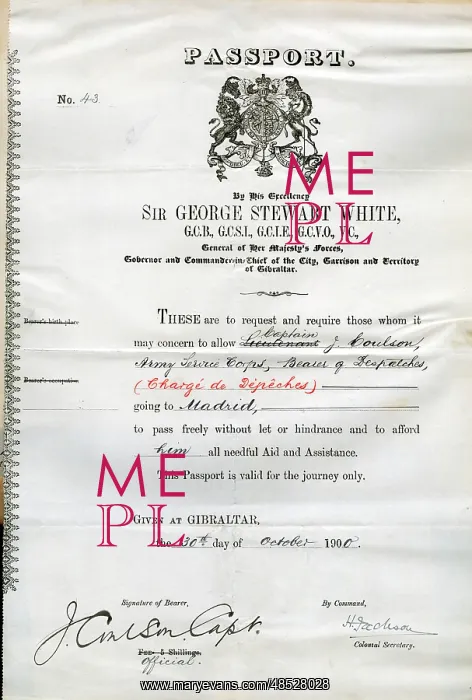 PASSPORT.
No. 43.
By His Excellency
SIR GEORGE STEWART WHITE,
G.C.B., G.C.S.I., G.C.I.E., G.C.V.O., V.C.,
General of Her Majesty's Forces,
Governor and Commander-in-Chief of the City, Garrison and Territory
of Gibraltar.
Bearer's birth-place
Bearer's occupation
THESE are to request and require those whom it
Captain
may concern to allow Lieutenant J. Coulson,
Army Service Corps, Bearer of Despatches,
(Chargé de Dépêches)
going to Madrid,
to pass freely without let or hindrance and to afford
him all needful Aid and Assistance.
This Passport is valid for the journey only.
GIVEN AT GIBRALTAR,
the 30th day of October 1900.
Signature of Bearer,
By Command,
J. Coulson Capt.
H. Jackson
Colonial Secretary.
Fee- 5 Shillings.
Official.
ME
PL
ME
PL
www.maryevans.com/48528028